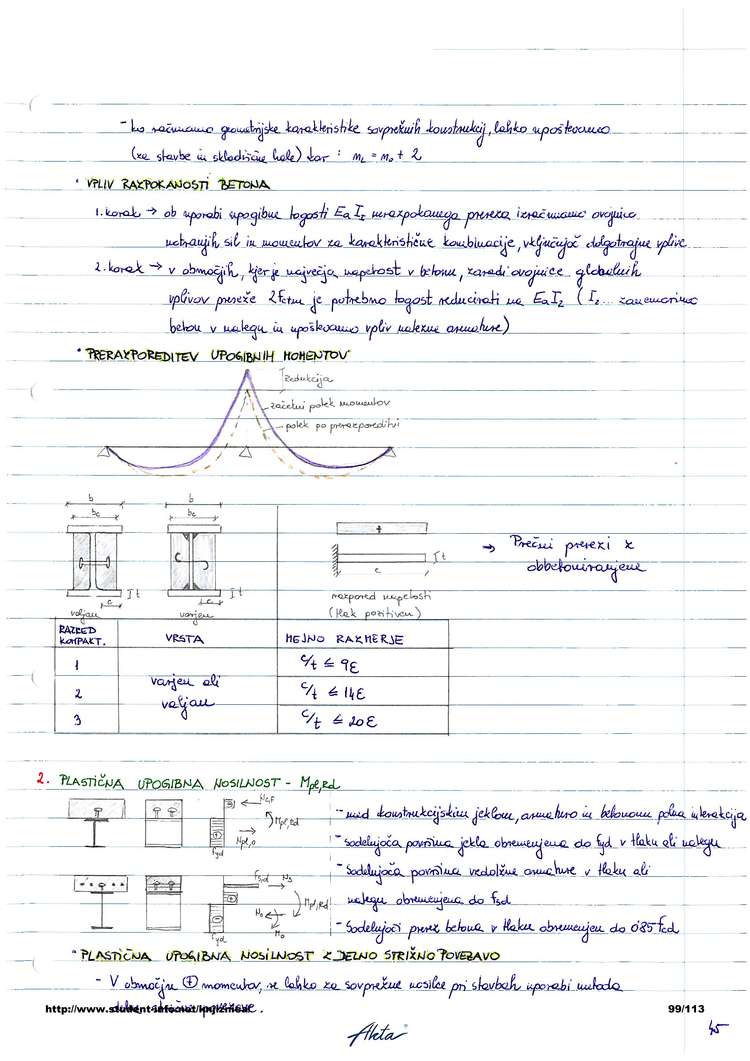 - ko računamo geometrijske karakteristike sovprežnih konstrukcij, lahko upoštevamo
(za stavbe in skladiščne hale) kar : nL = n0 + 2
• VPLIV RAZPOKANOSTI BETONA
1. korak → ob uporabi upogibne togosti EaI1 nerazpokanega prereza izračunamo ovojnico
notranjih sil in momentov za karakteristične kombinacije, vključujoč dolgotrajne vplive
2. korak → v območjih, kjer je največja napetost v betonu, zaradi ovojnice globalnih
vplivov preseže 2fctm je potrebno togost reducirati na EaI2 (I2 ... zanemarimo
beton v nategu in upoštevamo vpliv natezne armature)
• PRERAZPOREDITEV UPOGIBNIH MOMENTOV
redukcija
začetni potek momentov
potek po prerazporeditvi
b b
bc bc
+
t
c
t t
c c
→ Prečni prerezi z
obbetoniranjem
valjan varjen
razpored napetosti
(tlak pozitiven)
RAZRED KOMPAKT. VRSTA MEJNO RAZMERJE
1 c/t ≤ 9ε
varjen ali valjan
2 c/t ≤ 14ε
3 c/t ≤ 20ε
2. PLASTIČNA UPOGIBNA NOSILNOST - Mpl,Rd
Nc,f
Mpl,Rd
Npl,a
fyd
- med konstrukcijskim jeklom, armaturo in betonom polna interakcija
- Sodelujoča površina jekla obremenjena do fyd v tlaku ali nategu
- Sodelujoča površina vzdolžne armature v tlaku ali
nategu obremenjena do fsd
- Sodelujoči prerez betona v tlaku obremenjen do 0.85 fcd
fsd
Ns
Mpl,Rd
Na
Ma
fyd
• PLASTIČNA UPOGIBNA NOSILNOST Z DELNO STRIŽNO POVEZAVO
- V območju ⊕ momentov, se lahko za sovprežne nosilce pri stavbah uporabi metoda
delne strižne povezave.
http://www.student-info.net/knjiznica/
99/113
45
Akta